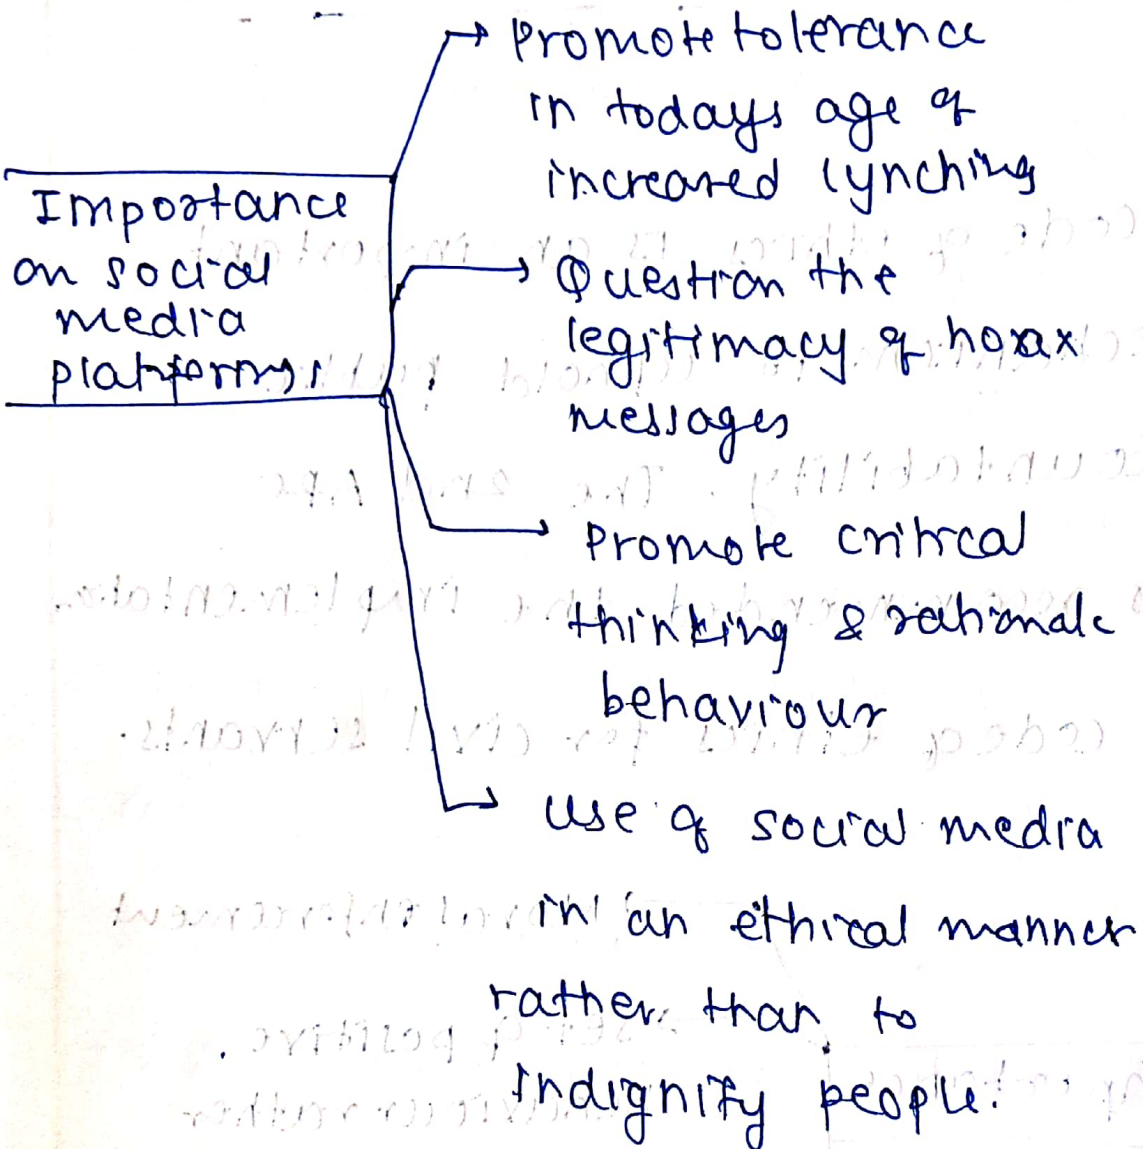 Importance
on social
media
platforms:
Promote tolerance
in todays age of
increased lynching
Question the
legitimacy of hoax
messages
Promote critical
thinking & rationale
behaviour
use of social media
in an ethical manner
rather than to
indignify people.